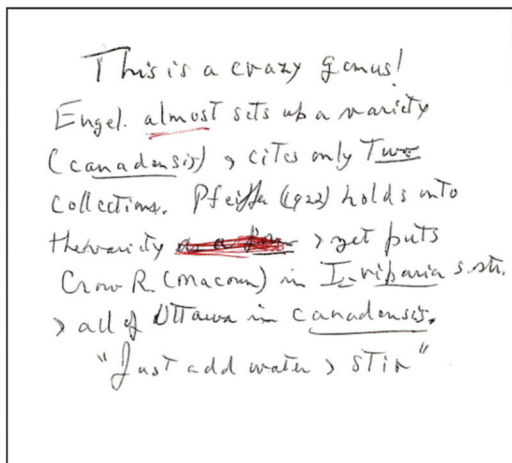 This is a crazy genus!
Engel. almost sets up a variety
(canadensis) & cites only Two
collections. Pfeiffer (1922) holds onto
the variety & yet puts
Crow R. (Macoun) in I. riparia s. str.
& all of Ottawa in canadensis.
"Just add water & stir"